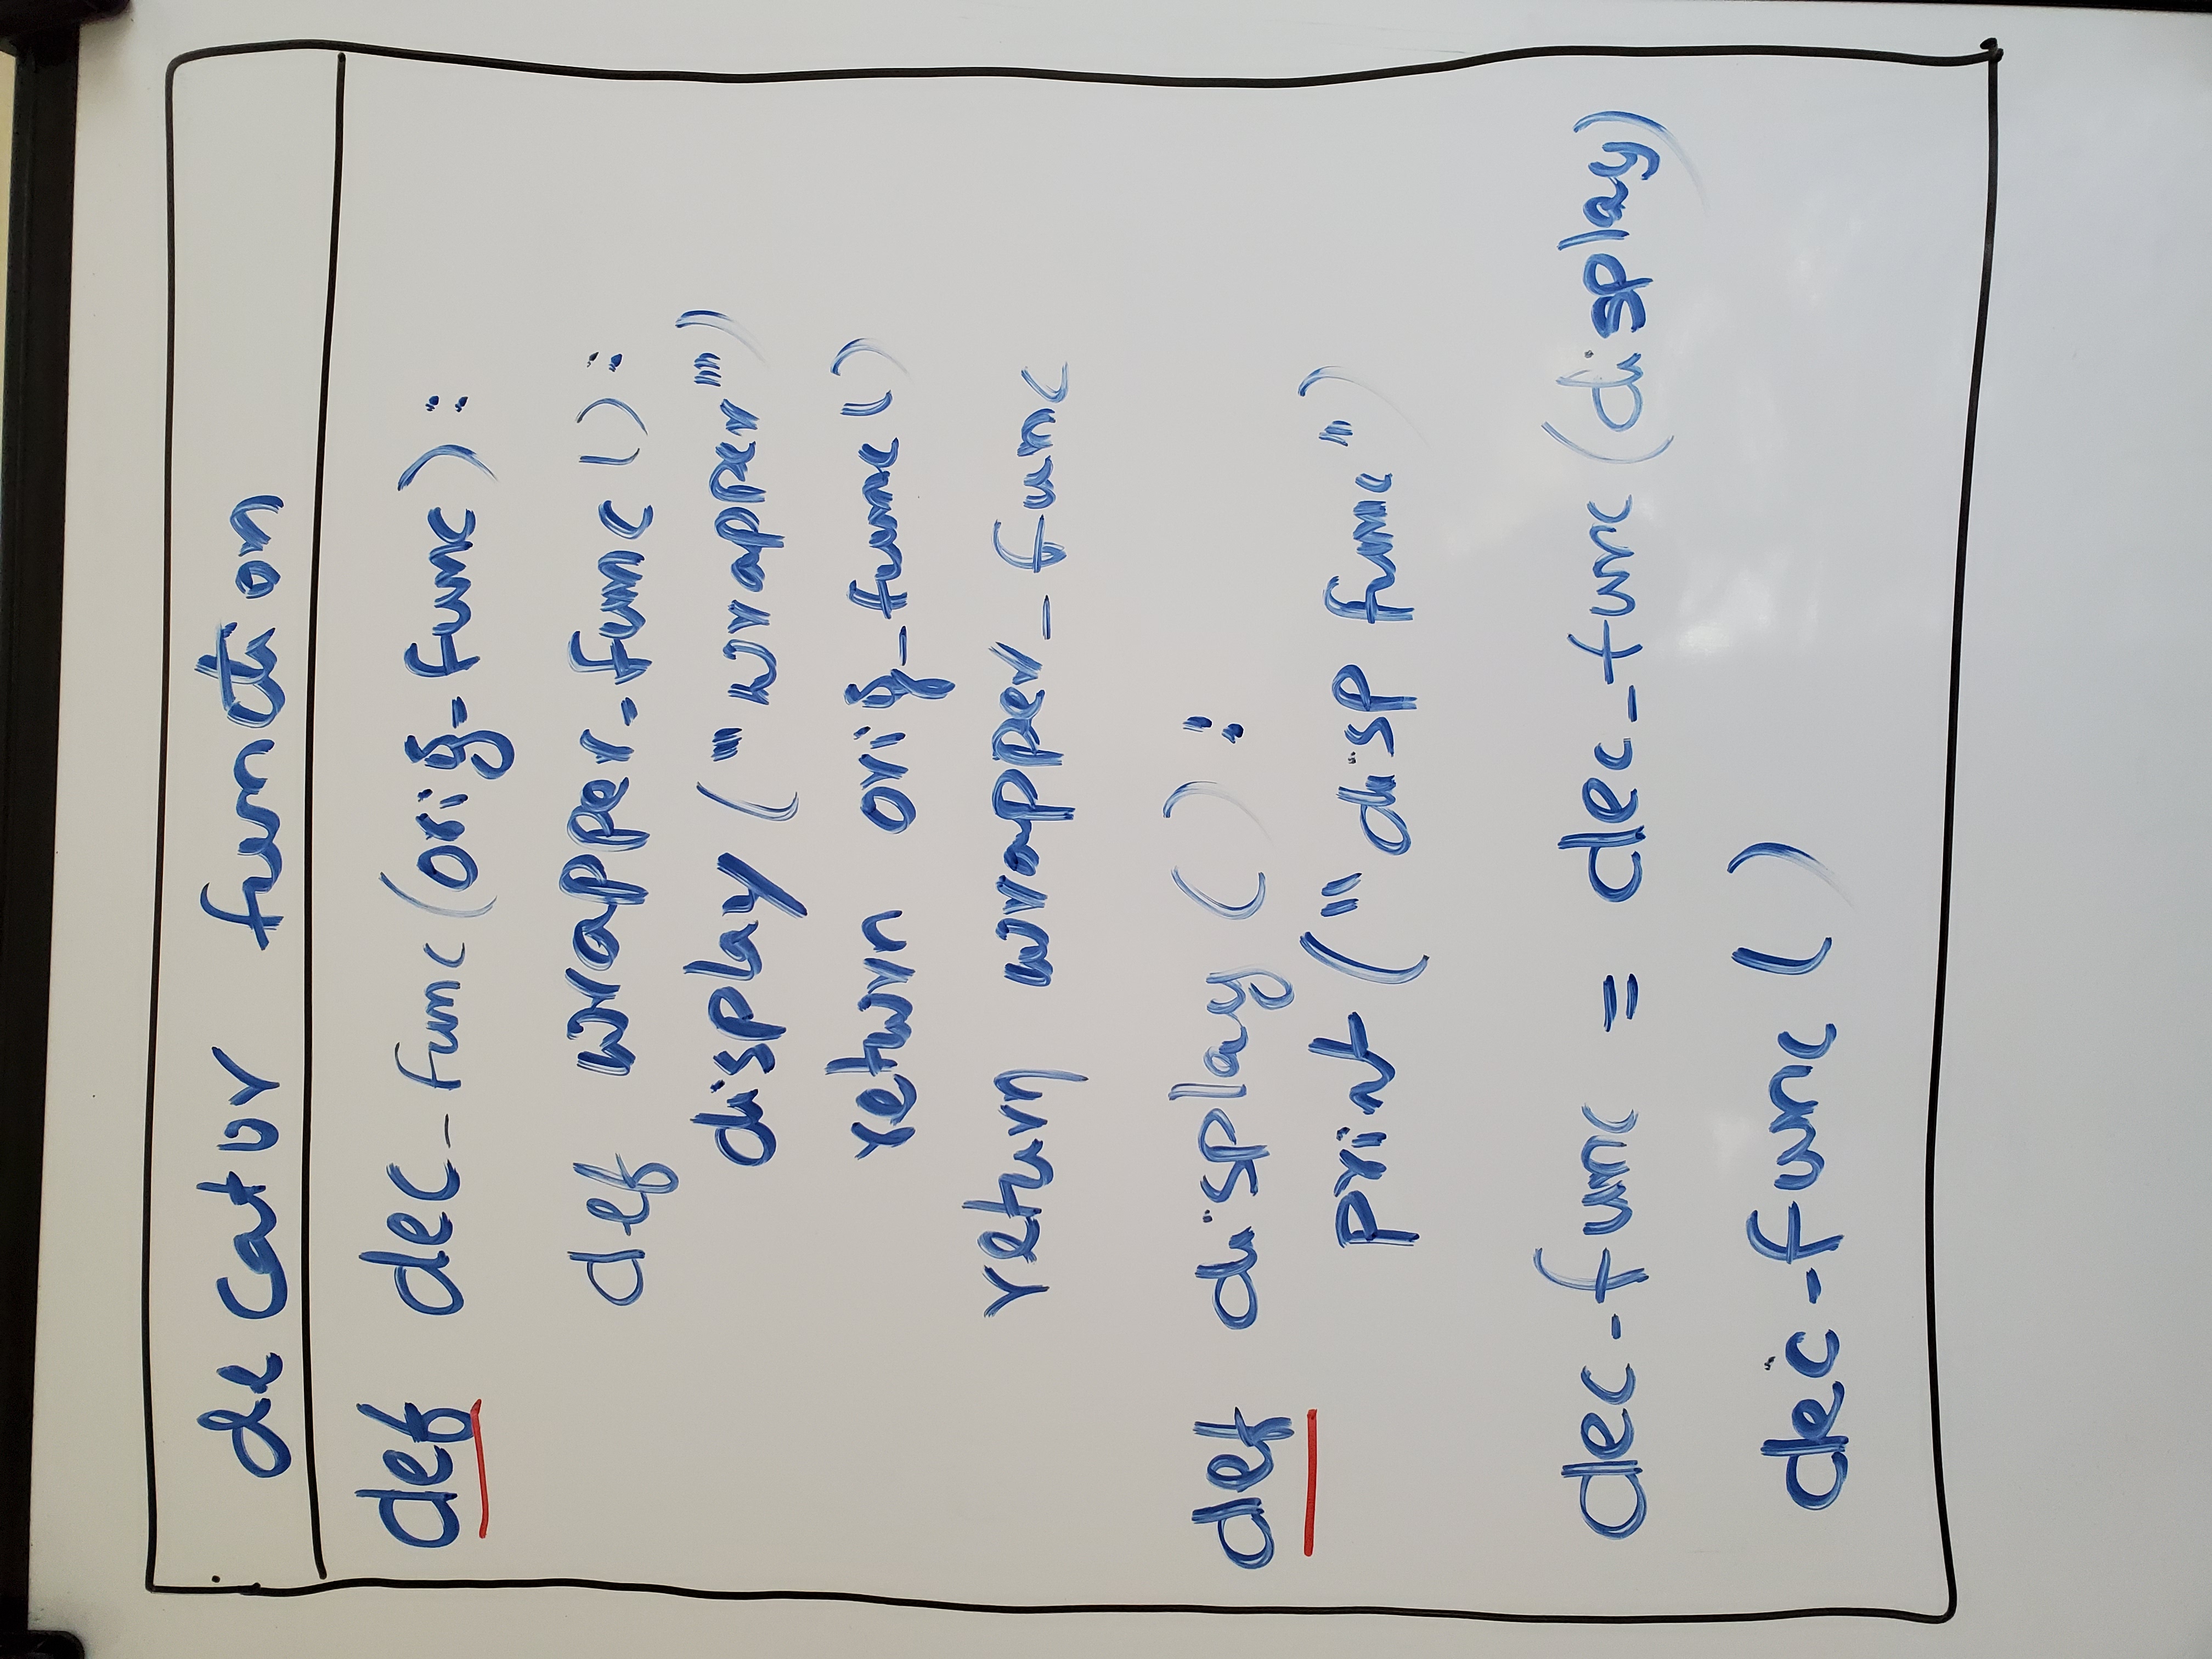 decator function
def dec_func(orig_func):
def wrapper_func():
display("wrapper")
return orig_func()
return wrapper_func
def display():
print("disp func")
dec-func = dec_func(display)
dec-func()